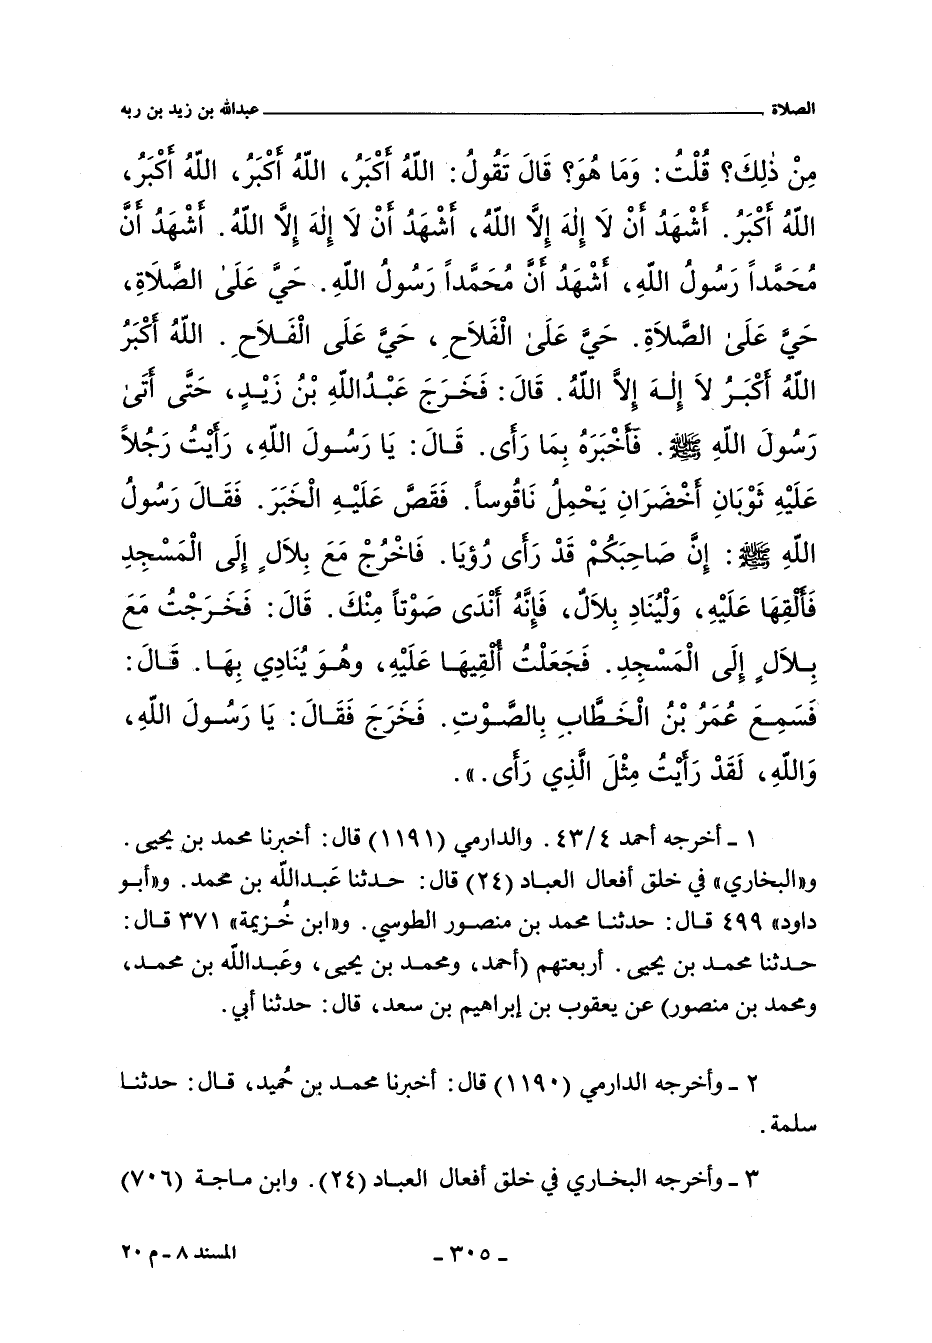 الصلاة ــــــــــــــــــــــــــــــــــــــــــــــــ عبدالله بن زيد بن ربه
مِنْ ذٰلِكَ؟ قُلْتُ: وَمَا هُوَ؟ قَالَ تَقُولُ: اللّهُ أَكْبَرُ، اللّهُ أَكْبَرُ، اللّهُ أَكْبَرُ،
اللّهُ أَكْبَرُ. أَشْهَدُ أَنْ لَا إِلٰهَ إِلَّا اللّهُ، أَشْهَدُ أَنْ لَا إِلٰهَ إِلَّا اللّهُ. أَشْهَدُ أَنَّ
مُحَمَّداً رَسُولُ اللّهِ، أَشْهَدُ أَنَّ مُحَمَّداً رَسُولُ اللّهِ. حَيَّ عَلَىٰ الصَّلَاةِ،
حَيَّ عَلَىٰ الصَّلَاةِ. حَيَّ عَلَىٰ الْفَلَاحِ، حَيَّ عَلَى الْفَـلَاحِ. اللّهُ أَكْبَرُ
اللّهُ أَكْبَـرُ لاَ إِلٰـهَ إِلاَّ اللّهُ. قَالَ: فَخَـرَجَ عَبْـدُاللّهِ بْنُ زَيْـدٍ، حَتَّى أَتَىٰ
رَسُولَ اللّهِ ﷺ. فَأَخْبَرَهُ بِمَا رَأَى. قَـالَ: يَا رَسُـولَ اللّهِ، رَأَيْتُ رَجُلاً
عَلَيْهِ ثَوْبَانِ أَخْضَرَانِ يَحْمِلُ نَاقُوساً. فَقَصَّ عَلَيْـهِ الْخَبَرَ. فَقَـالَ رَسُولُ
اللّهِ ﷺ: إِنَّ صَاحِبَكُمْ قَدْ رَأَى رُؤْيَا. فَاخْرُجْ مَعَ بِلاَلٍ إِلَى الْمَسْجِدِ
فَأَلْقِهَا عَلَيْهِ، وَلْيُنَادِ بِلاَلٌ، فَإِنَّهُ أَنْدَى صَوْتاً مِنْكَ. قَالَ: فَخَـرَجْتُ مَعَ
بِـلاَلٍ إِلَى الْمَسْجِدِ. فَجَعَلْتُ أُلْقِيهَـا عَلَيْهِ، وهُـوَ يُنَادِي بِهَـا. قَـالَ:
فَسَمِـعَ عُمَرُ بْنُ الْخَطَّابِ بِالصَّوْتِ. فَخَرَجَ فَقَالَ: يَا رَسُـولَ اللّهِ،
وَاللّهِ، لَقَدْ رَأَيْتُ مِثْلَ الَّذِي رَأَى.».
١ ـ أخرجه أحمد ٤/٤٣. والدارمي (١١٩١) قال: أخبرنا محمد بن يحيى.
و«البخاري» في خلق أفعال العباد (٢٤) قال: حدثنا عَبدالله بن محمد. و«أبو
داود» ٤٩٩ قـال: حدثنـا محمد بن منصـور الطوسي. و«ابن خُـزيمة» ٣٧١ قـال:
حـدثنا محمـد بن يحيى. أربعتهم (أحمد، ومحمـد بن يحيى، وعَبـدالله بن محمـد،
ومحمد بن منصور) عن يعقوب بن إبراهيم بن سعد، قال: حدثنا أبي.
٢ ـ وأخرجه الدارمي (١١٩٠) قال: أخبرنا محمـد بن حُميد، قـال: حدثنـا
سلمة.
٣ ـ وأخرجه البخـاري في خلق أفعال العبـاد (٢٤). وابن مـاجـة (٧٠٦)
ـ ٣٠٥ ـ المسند ٨ ـ م ٢٠